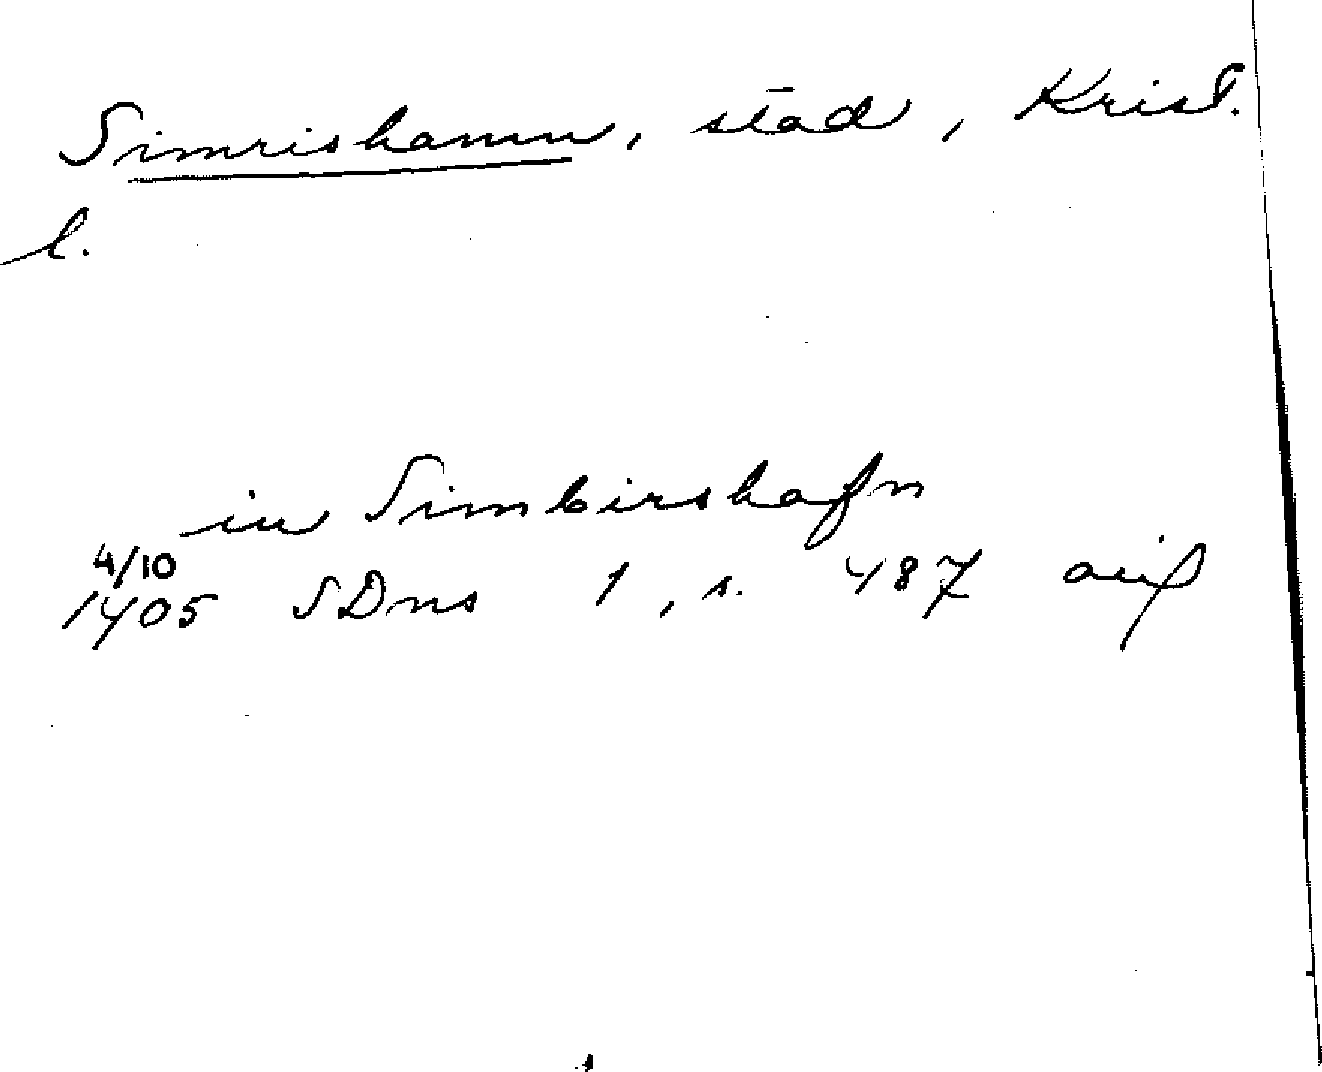 Simrishamn, stad, Krist.
l.
in Simbirshafn
4/10
1405 SDns 1, s. 487 avs